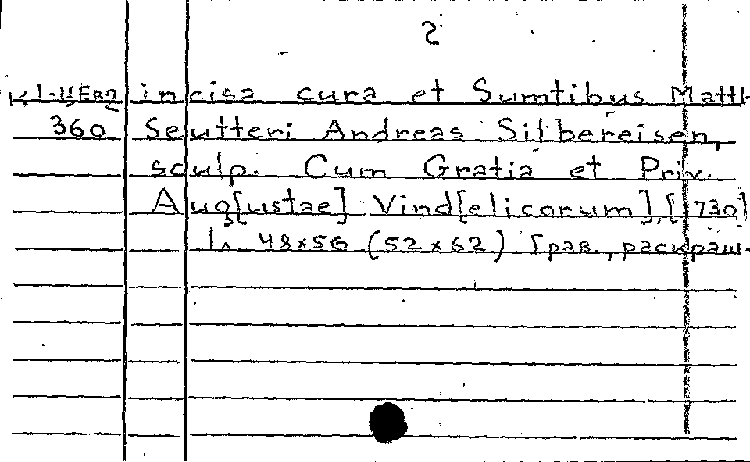 2
incisa cura et Sumtibus Matth
360 Seutteri Andreas Silbereisen,
sculp. Cum Gratia et Priv.
Aug[ustae] Vind[elicorum], [1730]
1л. 48x56 (52x62) Грав., раскраш.